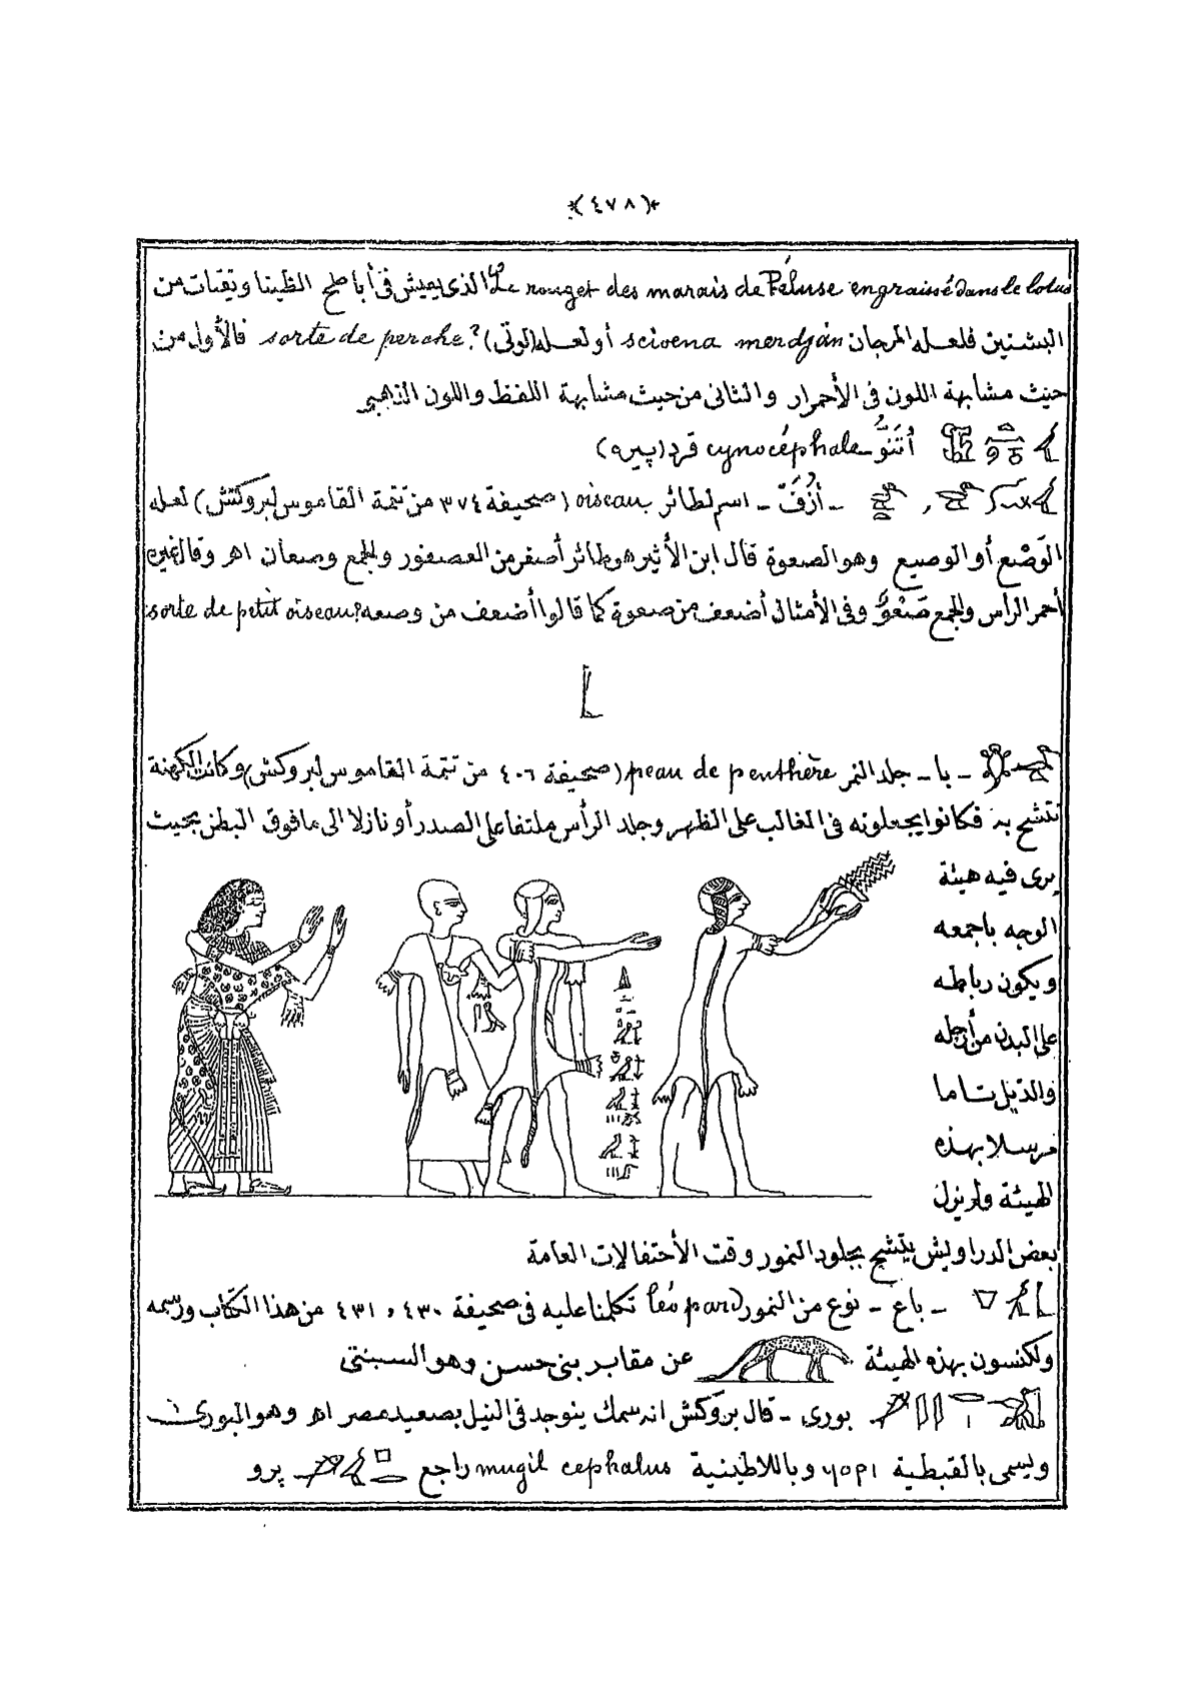 ﴿٤٧٨﴾
Le rouget des marais de Péluse engraissé dans le lotus الذى يعيش فى أباطح الطينا ويقتات من
البشنين فلعله المرجان sciœna merdjan أو لعله (لوتى) sorte de perche? فالأول من
حيث مشابهة اللون فى الأحمرار والثانى من حيث مشابهة اللفظ واللون الذهبى
أتَنَوُّ cynocéphale قرد (پيره)
ـ أزُفَّ ـ اسم لطائر oiseau (صحيفة ٣٧٤ من تتمة القاموس لبروكش) لعله
الوَصْع أو الوصيع وهو الصعوة قال ابن الأثير هو طائر أصغر من العصفور والجمع وصعان اهر وقال غيره
أحمر الرأس والجمع صَعْوٌ وفى الأمثال أضعف من صعوة كما قالوا أضعف من وصعه sorte de petit oiseau?
ـ با ـ جلد النمر peau de penthère (صحيفة ٤٠٦ من تتمة القاموس لبروكش) وكانت الكهنة
تتشح به فكانوا يجعلونه فى الغالب على الظهر وجلد الرأس ملتفا على الصدر أو نازلا الى ما فوق البطن بحيث
يرى فيه هيئة
الوجه باجمعه
ويكون رباطه
على البدن من أرجله
والذيل تاما
مرسلا بهذه
الهيئة ولم يزل
بعض الدراويش يتشح بجلود النمور وقت الأحتفالات العامة
ـ باع ـ نوع من النمور (léopard) تكلمنا عليه فى صحيفة ٤٣٠ و ٤٣١ من هذا الكتاب ورسمه
ولكنسون بهذه الهيئة عن مقابر بنى حسن وهو السبنتى
بورى ـ قال بروكش انه سمك يوجد فى النيل بصعيد مصر اهر وهو البورى
ويسمى بالقبطية ⲩⲟⲣⲓ وباللاطينية mugil cephalus راجع پرو